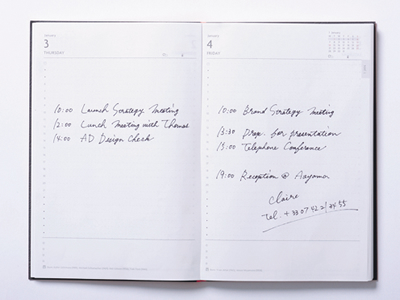 3
THURSDAY
10:00 Launch Strategy Meeting
12:00 Lunch Meeting with Thomas
14:00 AD Design Check
4
FRIDAY
10:00 Brand Strategy Meeting
13:30 Prep. for presentation
15:00 Telephone Conference
19:00 Reception @ Aoyama
Claire
Tel. +33 07 42